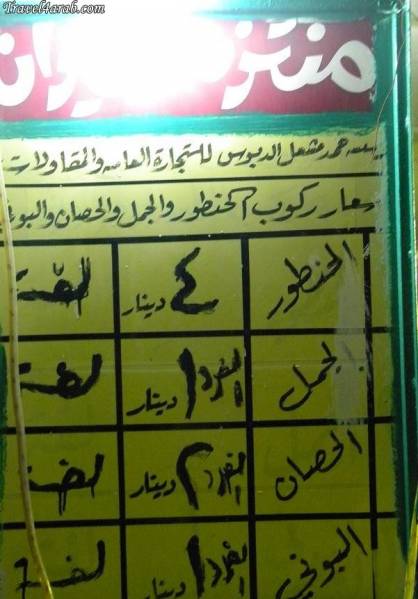 Travel4arab.com
منتزه
مؤسسة حمد مشعل الدبوس للتجارة العامة والمقاولات
أسعار ركوب الحنطور والجمل والحصان والبوني
الحنطور ٤ دينار لفة
الجمل الفرد ١ دينار لفة
الحصان الفرد ٢ دينار لفة
البوني الفرد ١ لفة